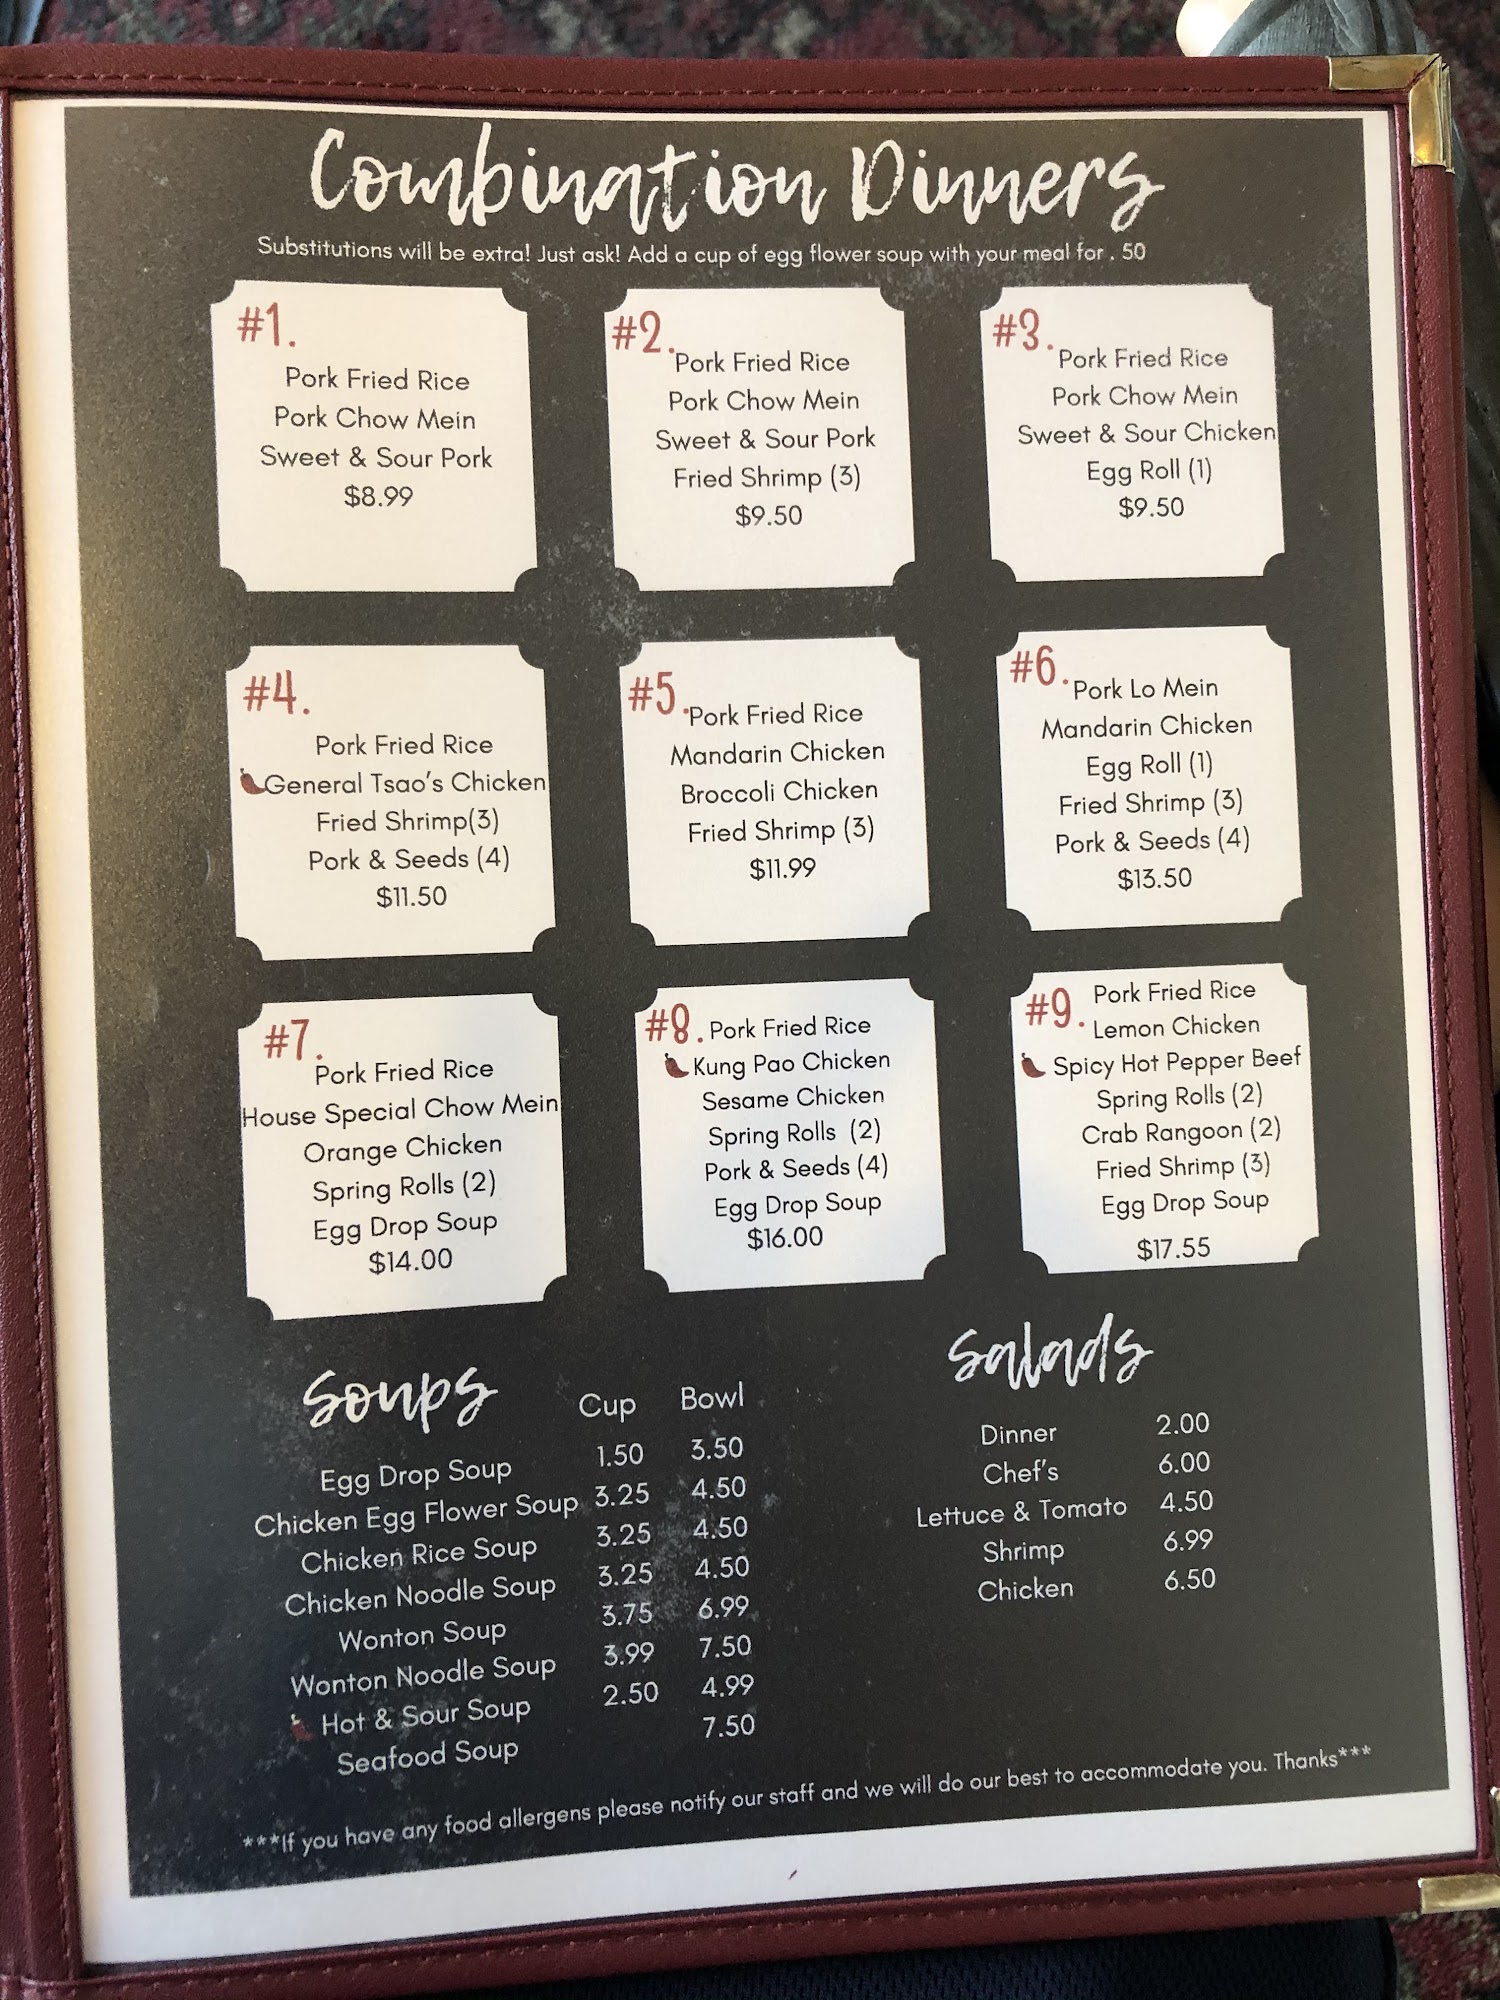 Combination Dinners
Substitutions will be extra! Just ask! Add a cup of egg flower soup with your meal for . 50
#1.
Pork Fried Rice
Pork Chow Mein
Sweet & Sour Pork
$8.99
#2.
Pork Fried Rice
Pork Chow Mein
Sweet & Sour Pork
Fried Shrimp (3)
$9.50
#3.
Pork Fried Rice
Pork Chow Mein
Sweet & Sour Chicken
Egg Roll (1)
$9.50
#4.
Pork Fried Rice
General Tsao's Chicken
Fried Shrimp(3)
Pork & Seeds (4)
$11.50
#5.
Pork Fried Rice
Mandarin Chicken
Broccoli Chicken
Fried Shrimp (3)
$11.99
#6.
Pork Lo Mein
Mandarin Chicken
Egg Roll (1)
Fried Shrimp (3)
Pork & Seeds (4)
$13.50
#7.
Pork Fried Rice
House Special Chow Mein
Orange Chicken
Spring Rolls (2)
Egg Drop Soup
$14.00
#8.
Pork Fried Rice
Kung Pao Chicken
Sesame Chicken
Spring Rolls (2)
Pork & Seeds (4)
Egg Drop Soup
$16.00
#9.
Pork Fried Rice
Lemon Chicken
Spicy Hot Pepper Beef
Spring Rolls (2)
Crab Rangoon (2)
Fried Shrimp (3)
Egg Drop Soup
$17.55
Soups Cup Bowl
Egg Drop Soup 1.50 3.50
Chicken Egg Flower Soup 3.25 4.50
Chicken Rice Soup 3.25 4.50
Chicken Noodle Soup 3.25 4.50
Wonton Soup 3.75 6.99
Wonton Noodle Soup 3.99 7.50
Hot & Sour Soup 2.50 4.99
Seafood Soup 7.50
Salads
Dinner 2.00
Chef's 6.00
Lettuce & Tomato 4.50
Shrimp 6.99
Chicken 6.50
***If you have any food allergens please notify our staff and we will do our best to accommodate you. Thanks***